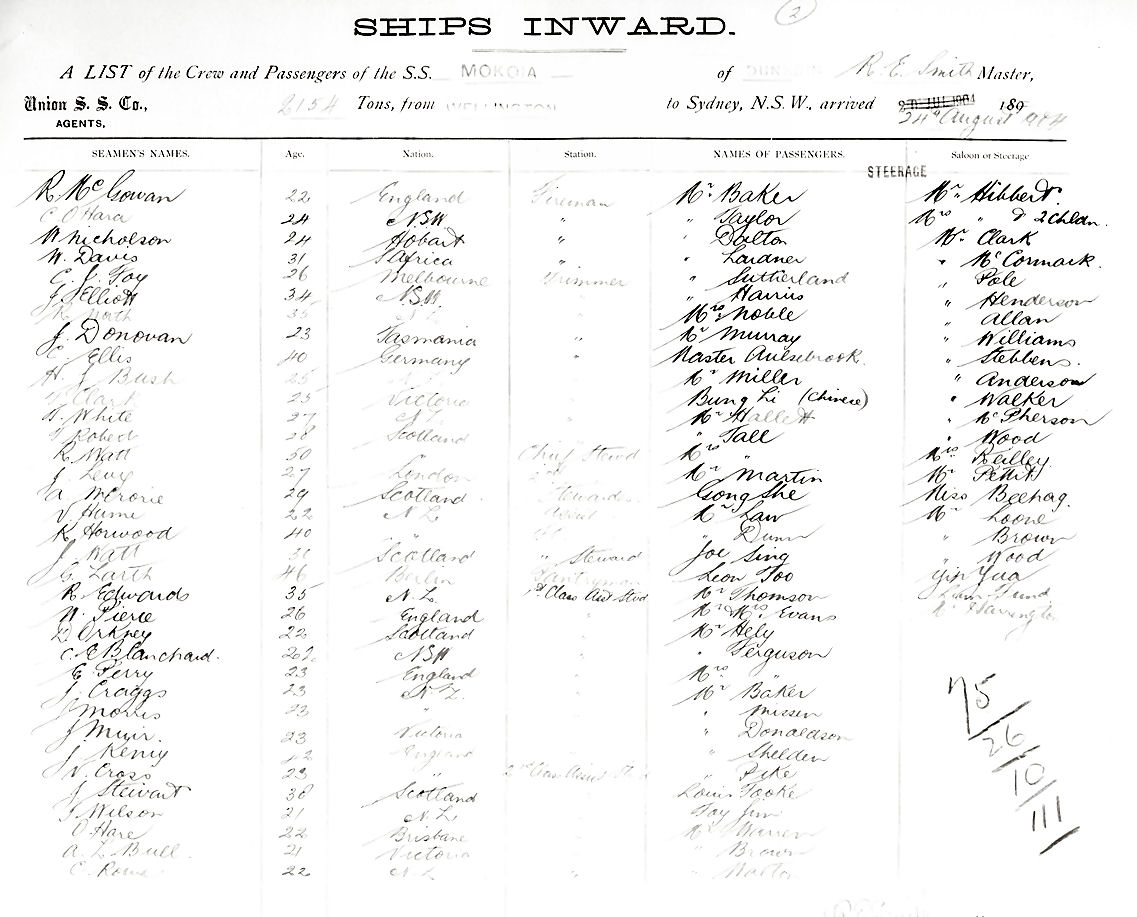 2
SHIPS INWARD.
A LIST of the Crew and Passengers of the S.S. MOKOIA of DUNEDIN R. E. Smith Master,
Union S. S. Co., 2154 Tons, from WELLINGTON to Sydney, N.S.W., arrived 189
AGENTS. 24th August 1904
SEAMEN'S NAMES. Age. Nation. Station. NAMES OF PASSENGERS. Saloon or Steerage
STEERAGE
R McGowan 22 England Fireman Mr Baker Mr Hibbert
C O'Hara 24 NSW " " Taylor Mrs " & 2 Chldn
W Nicholson 24 Hobart " " Dalton Mr Clark
W. Davis 31 S Africa " " Lardner " McCormack.
C. J. Foy 26 Melbourne Trimmer " Sutherland " Pole
J S Elliott 34 NSW. " " Harris " Henderson
35 N Z " Mrs Noble " Allan
J. Donovan 23 Tasmania " Mr Murray " Williams
C Ellis 40 Germany " Master Aulsebrook. " Stebbens.
H. J Bush 25 Mr Miller " Anderson
Clark 25 Victoria Bung Li (Chinese) " Walker
W. White 27 N Z Mr Hallett " McPherson
Robert 28 Scotland " Tall " Wood
R Watt 50 Chief Stewd Mrs " Mrs Reilley
J. Levy 27 London 2nd Mr Martin Mr Pettit
A McCrorie 29 Scotland Stewards Gong She Miss Beehag.
V Hume 22 N Z Mr Law Mr Loone
K Horwood 40 " " Dunn " Brown
J Watt 31 Scotland " Steward Joe Sing " Wood
G Larth 46 Berlin Pantryman Leon Too Yip Yua
R. Edwards 35 N. Z. 1st Class Asst Stwd Mr Thomson
W. Pierce 26 England " Mr & Mrs Evans Mr Harrington
D Orkney 22 Scotland " Mr Hely
C A Blanchard. 22 NSW " " Ferguson
E Perry 23 England " Mrs "
J. Craggs 23 N Z. " Mr Baker
J Morris 23 " " " Missen
J Muir. 23 Victoria " " Donaldson
J. Kenny 42 England " " Shelden
W. Cross 23 " 2nd Class " Pike
J Stewart 38 Scotland Louis Tooke
J Wilson 21 N. Z Fay Jim
O'Hare 22 Brisbane Mr Warren
A. L Bull. 21 Victoria " Brown
C Rowe 22 N Z " " Walton
75/
26/
10/
111/